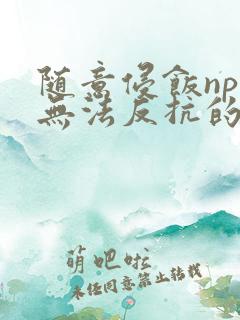 随意侵飯np
無法反抗的
萌吧啦
未經同意禁止轉載